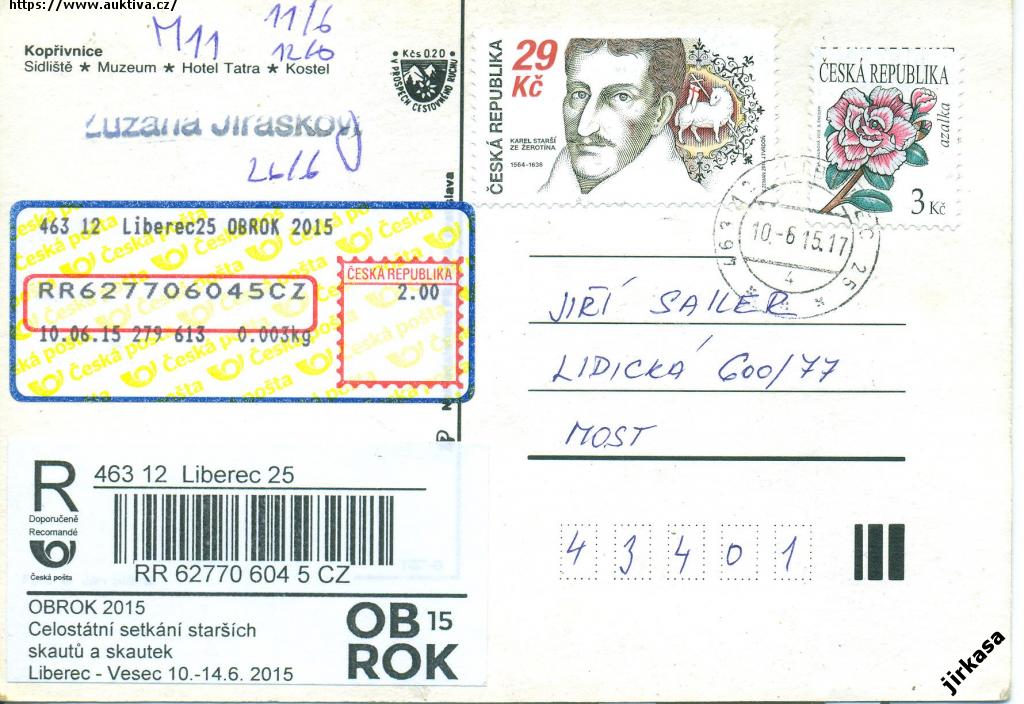 https://www.auktiva.cz/
M11
11/6
1260
Kopřivnice
Sídliště ★ Muzeum ★ Hotel Tatra ★ Kostel
• Kčs 0,20 •
V PROSPĚCH CESTOVNÍHO RUCHU
Zuzana Jirásková
26/6
ČESKÁ REPUBLIKA
29 Kč
KAREL STARŠÍ
ZE ŽEROTÍNA
1564-1636
ČESKÁ REPUBLIKA
azalka
3 Kč
463 12 LIBEREC 25
10.-6 15.17
4
463 12 Liberec25 OBROK 2015
RR627706045CZ
10.06.15 279 613 0.003kg
ČESKÁ REPUBLIKA
2.00
Česká pošta
JIŘÍ SAILER
LIDICKÁ 600/77
MOST
43401
R
Doporučeně
Recomandé
Česká pošta
463 12 Liberec 25
RR 62770 604 5 CZ
OBROK 2015
Celostátní setkání starších
skautů a skautek
Liberec - Vesec 10.-14.6. 2015
OB 15
ROK
jirkasa